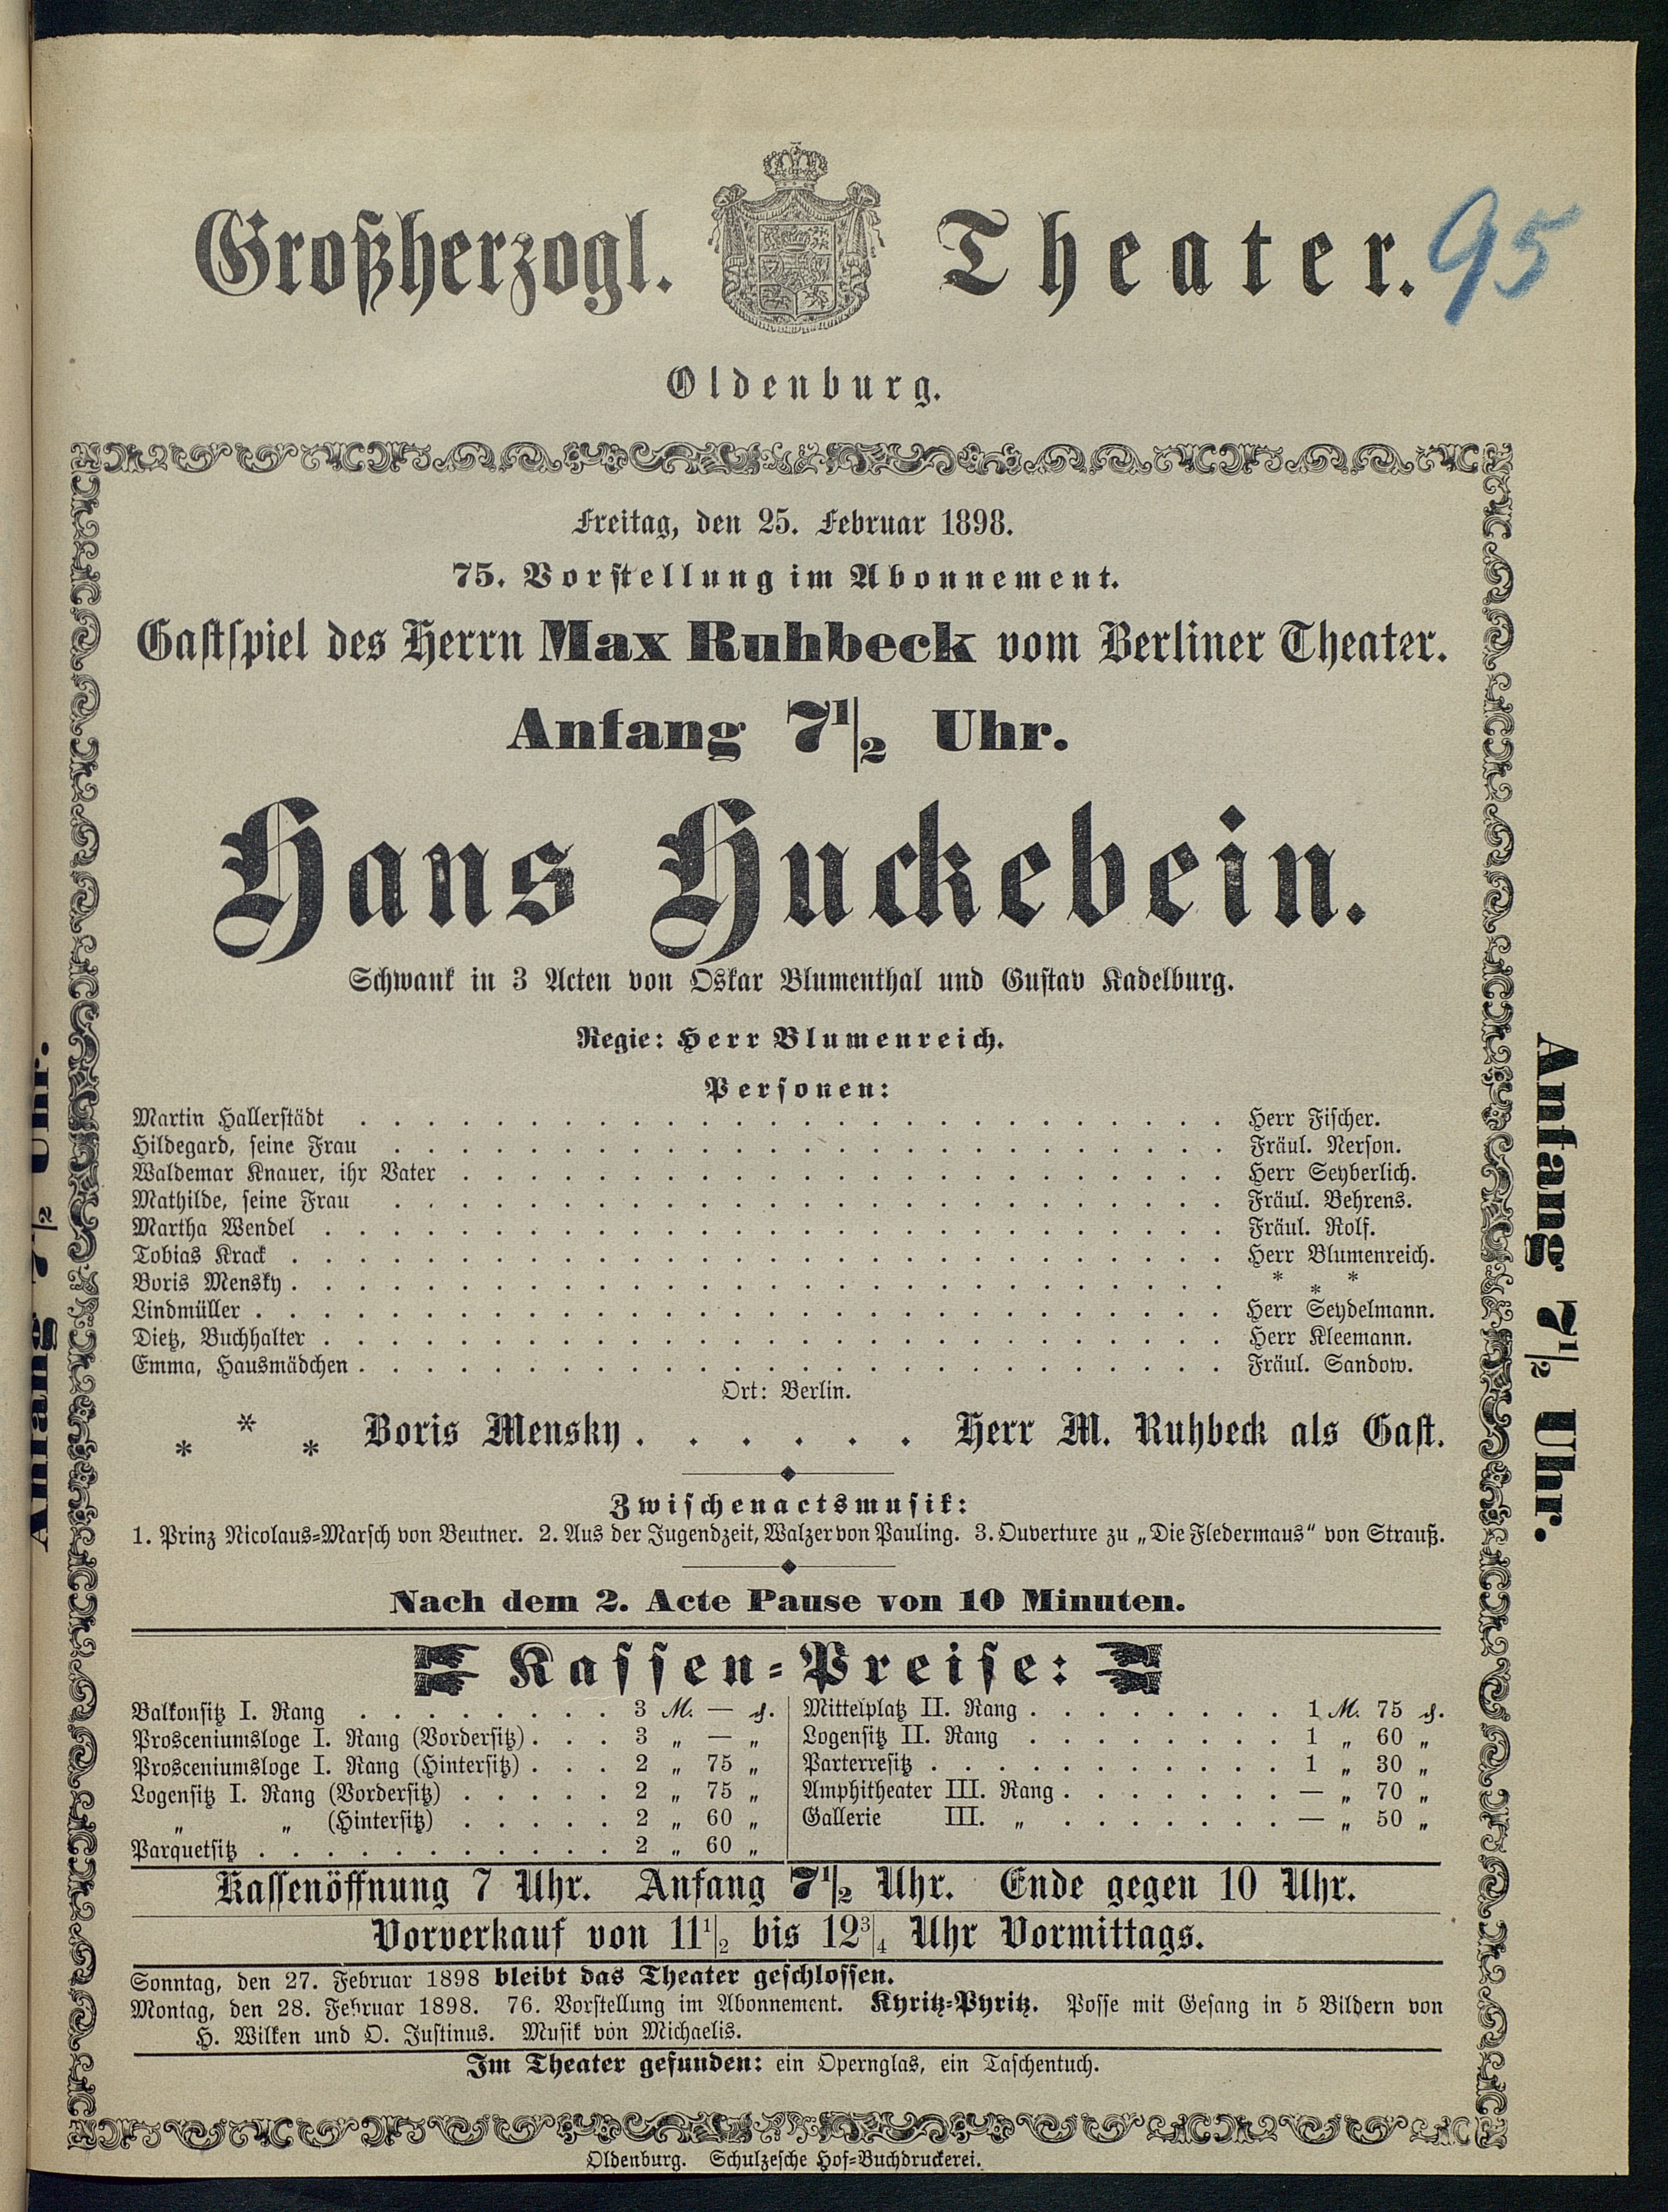 Großherzogl. Theater.
95
Oldenburg.
Freitag, den 25. Februar 1898.
75. Vorstellung im Abonnement.
Gastspiel des Herrn Max Ruhbeck vom Berliner Theater.
Anfang 7 1/2 Uhr.
Hans Huckebein.
Schwank in 3 Acten von Oskar Blumenthal und Gustav Kadelburg.
Regie: Herr Blumenreich.
Personen:
Martin Hallerstädt . . . . . Herr Fischer.
Hildegard, seine Frau . . . . . Fräul. Nerson.
Waldemar Knauer, ihr Vater . . . . . Herr Seyberlich.
Mathilde, seine Frau . . . . . Fräul. Behrens.
Martha Wendel . . . . . Fräul. Rolf.
Tobias Krack . . . . . Herr Blumenreich.
Boris Mensky . . . . . * * *
Lindmüller . . . . . Herr Seydelmann.
Dietz, Buchhalter . . . . . Herr Kleemann.
Emma, Hausmädchen . . . . . Fräul. Sandow.
Ort: Berlin.
* * * Boris Mensky . . . . . . Herr M. Ruhbeck als Gast.
Zwischenactsmusik:
1. Prinz Nicolaus-Marsch von Beutner. 2. Aus der Jugendzeit, Walzer von Pauling. 3. Ouverture zu „Die Fledermaus“ von Strauß.
Nach dem 2. Acte Pause von 10 Minuten.
Kassen-Preise:
Balkonsitz I. Rang . . . . . 3 M. — ₰.
Prosceniumsloge I. Rang (Vordersitz) . . . 3 „ — „
Prosceniumsloge I. Rang (Hintersitz) . . . 2 „ 75 „
Logensitz I. Rang (Vordersitz) . . . . . 2 „ 75 „
„ „ (Hintersitz) . . . . . 2 „ 60 „
Parquetsitz . . . . . 2 „ 60 „
Mittelplatz II. Rang . . . . . 1 M. 75 ₰.
Logensitz II. Rang . . . . . 1 „ 60 „
Parterresitz . . . . . 1 „ 30 „
Amphitheater III. Rang . . . . . — „ 70 „
Gallerie III. „ . . . . . — „ 50 „
Kassenöffnung 7 Uhr. Anfang 7 1/2 Uhr. Ende gegen 10 Uhr.
Vorverkauf von 11 1/2 bis 12 3/4 Uhr Vormittags.
Sonntag, den 27. Februar 1898 bleibt das Theater geschlossen.
Montag, den 28. Februar 1898. 76. Vorstellung im Abonnement. Kyritz-Pyritz. Posse mit Gesang in 5 Bildern von
H. Wilken und O. Justinus. Musik von Michaelis.
Im Theater gefunden: ein Opernglas, ein Taschentuch.
Oldenburg. Schulzesche Hof-Buchdruckerei.
Anfang 7 1/2 Uhr.
Anfang 7 1/2 Uhr.